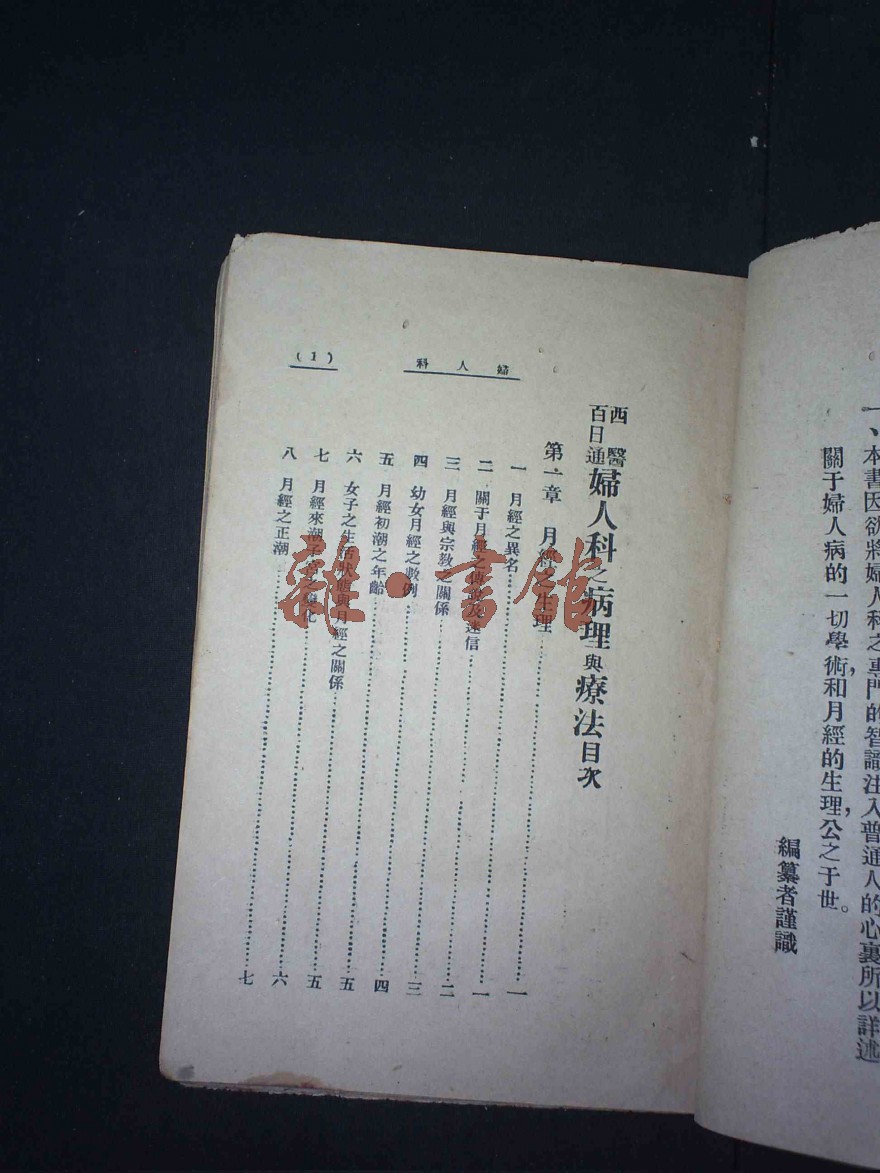 一、本書因欲將婦人科之專門的智識注入普通人的心裏所以詳述
關于婦人病的一切學術和月經的生理,公之于世。
編纂者謹識
婦人科
(1)
西醫
百日通
婦人科之病理與療法目次
第一章 月經之生理……一
一 月經之異名……一
二 關于月經之傳說及迷信……二
三 月經與宗教之關係……三
四 幼女月經之數例……四
五 月經初潮之年齡……五
六 女子之生活狀態與月經之關係……五
七 月經來潮子宮之變化……六
八 月經之正潮……七
雜·書館